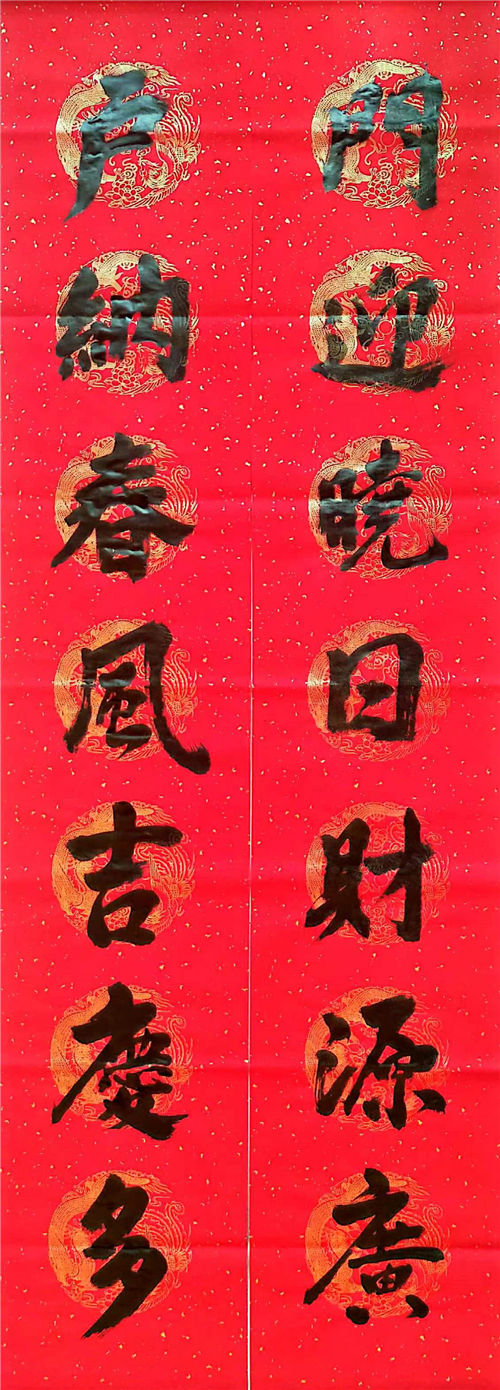 門迎曉日財源廣
户納春風吉慶多